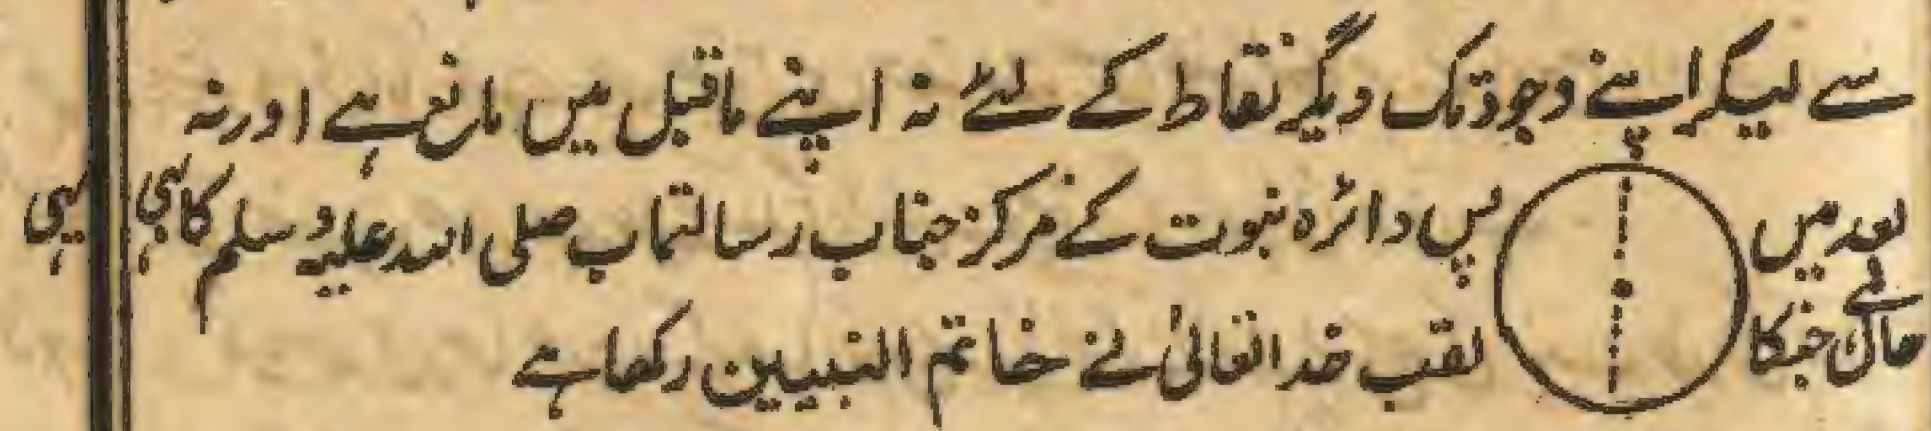 سے لیکر اپنے وجود تک دیگر نقاط کے لئے نہ اپنے ماقبل میں مانع ہے اور نہ
بعد میں پس دائرہ نبوت کے مرکز جناب رسالتماب صلی اللہ علیہ وسلم کا بھی یہی
حال ہے جنکا لقب خدا تعالیٰ نے خاتم النبیین رکھا ہے